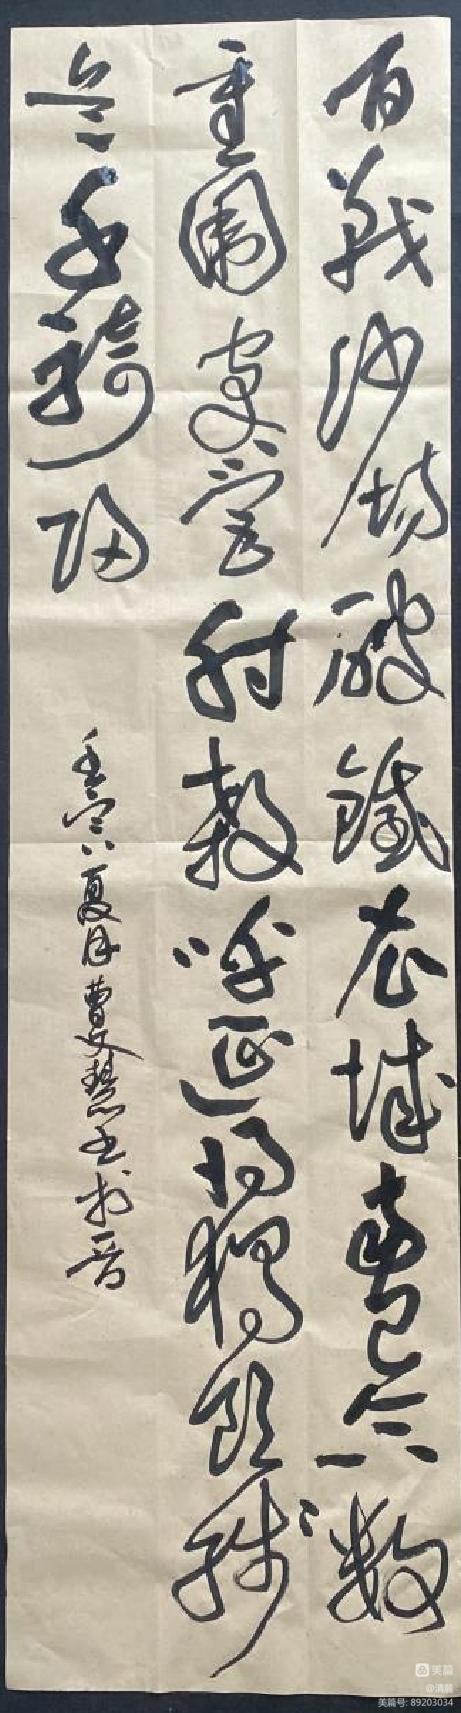 百戰沙場破鐵衣城南已合數
重圍突營射殺呼延將獨領殘
兵千騎歸
壬寅夏月曹文慧书於晋
美篇
美篇号: 89203034